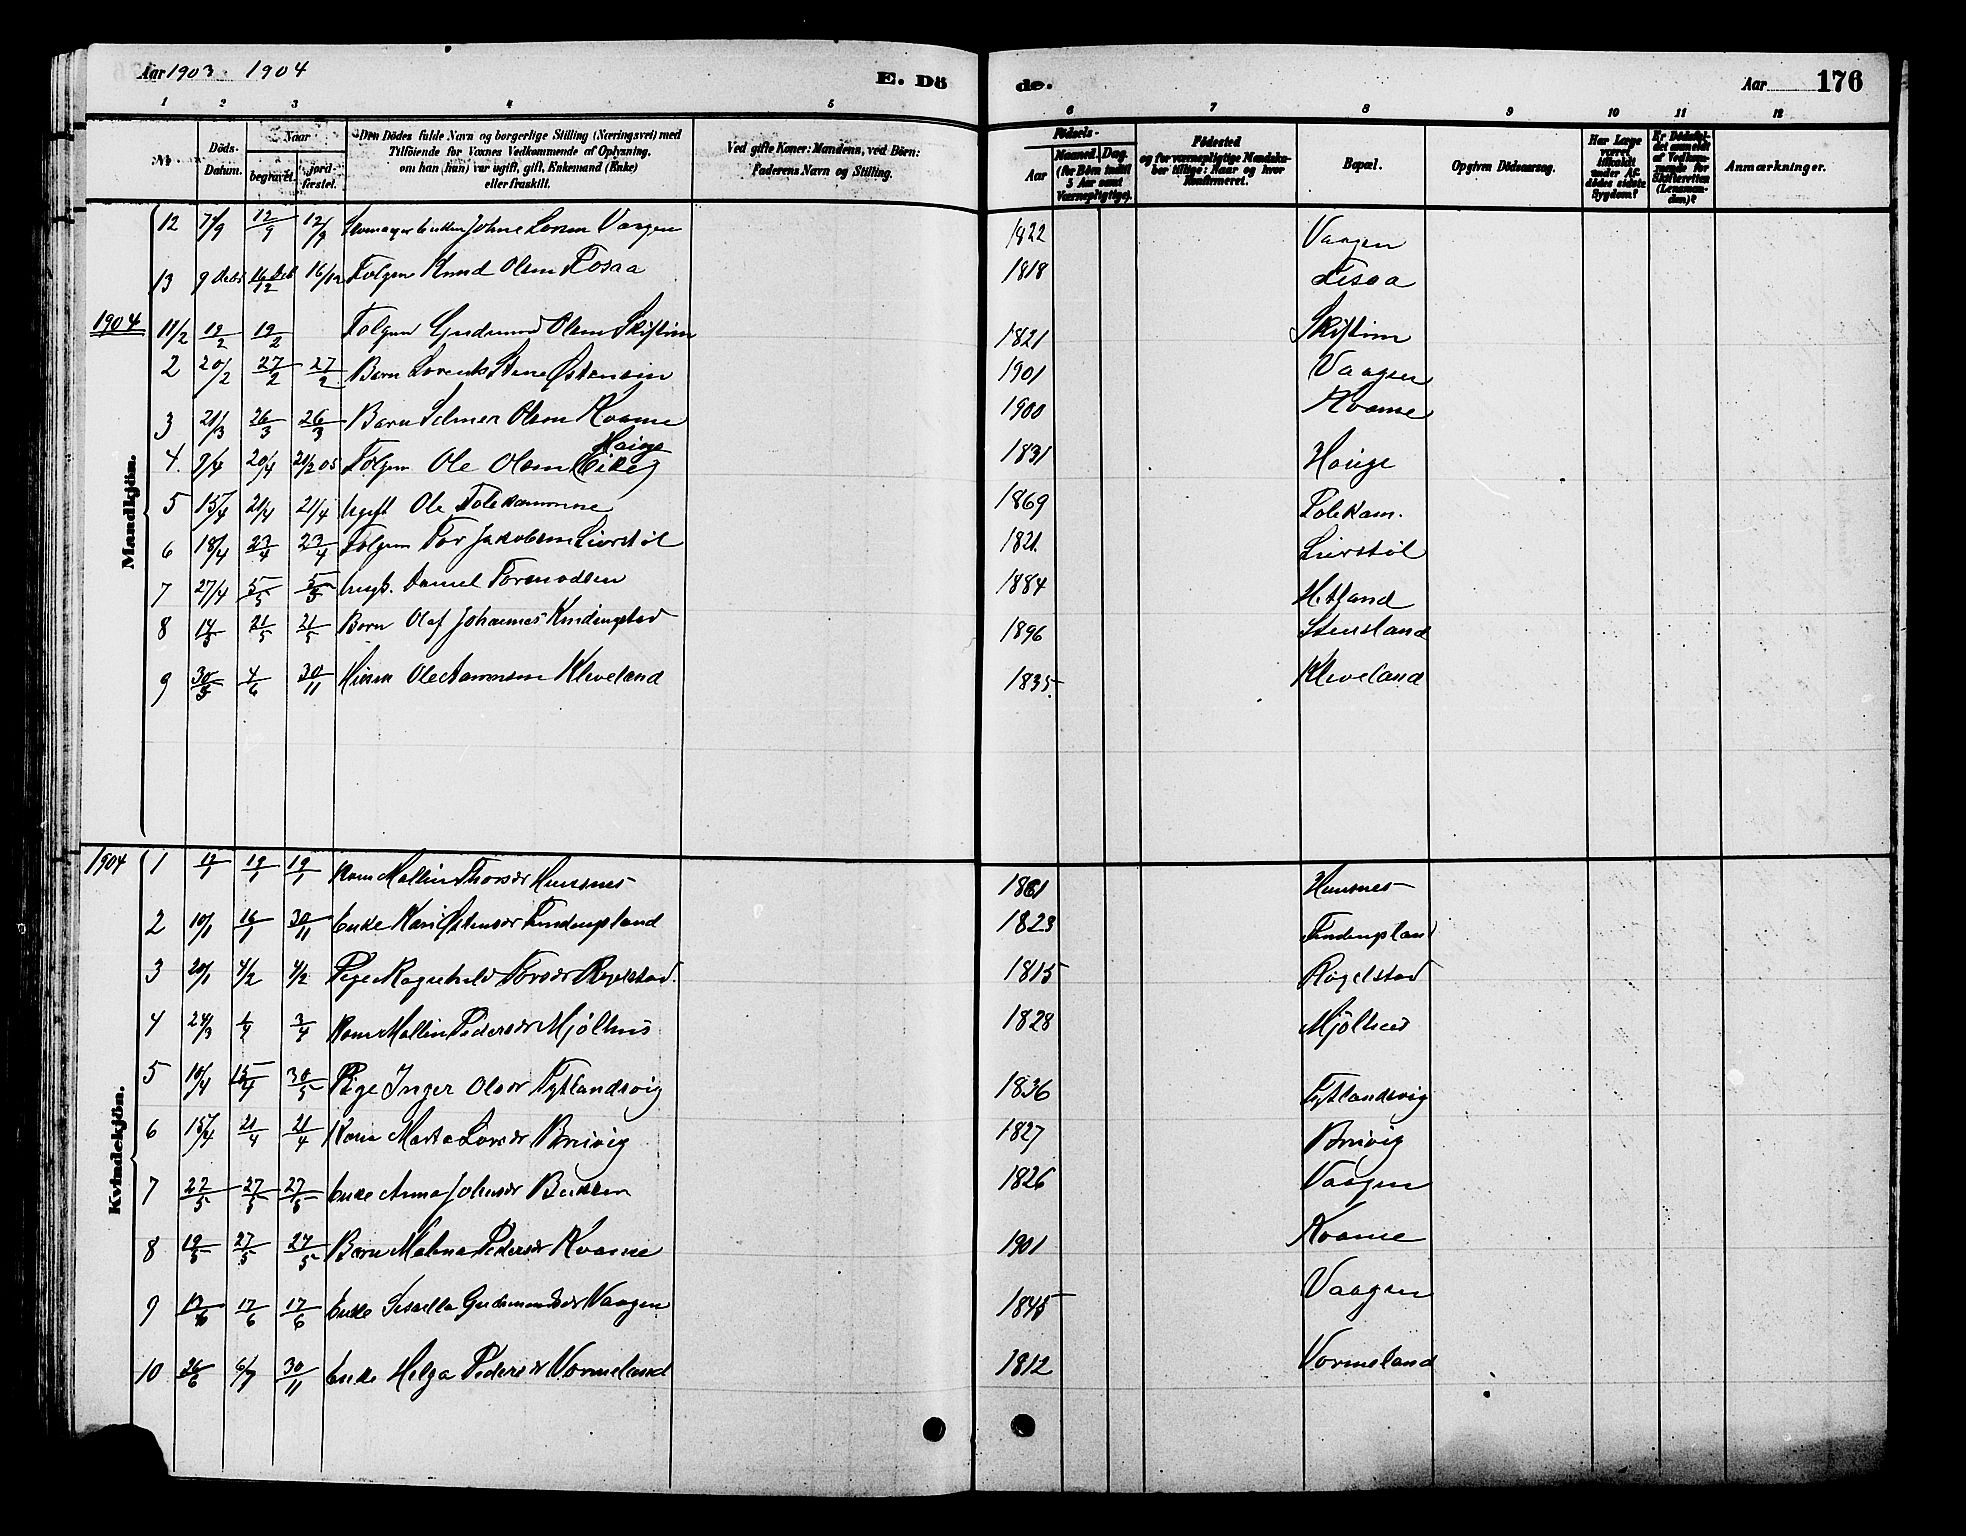 Aar 1903 1904 E. Döde. Aar 176
1 2 3 4 5 6 7 8 9 10 11 12
No. Döds-Datum. Naar begravet. jordfæstet. Den Dödes fulde Navn og borgerlige Stilling (Næringsvei) med Tilföiende for Voxnes Vedkommende af Oplysning, om han (hun) var ugift, gift, Enkemand (Enke) eller fraskilt. Ved gifte Koner: Mandens, ved Börn: Faderens Navn og Stilling. Födsels- Aar Maaned. Dag. (for Börn indtil 5 Aar samt Værnepligtige). Födested og for værnepligtige Mandskaber tillige: Naar og hvor Konfirmeret. Bopæl. Opgiven Dödsaarsag. Har Læge været tilkaldt under Afdödes sidste Sygdom? Er Dödsfaldet anmeldt af Vedkommende for Skifteretten (Lensmanden)? Anmærkninger.
Mandkjön.
12 7/9 12/9 12/9 Johne Larsen Vaagen 1822 Vaagen
13 9 Decbr 16/12 16/12 Folgem Knud Olsen Tosaa 1818 Tisaa
1904
1 11/2 19/2 19/2 Folgem Gudmund Olsen Skiftim 1821 Skiftim
2 20/2 27/2 27/2 Barn Lorents Stene Østensen 1901 Vaagen
3 21/3 26/3 26/3 Barn Selmer Olsen Kvame 1900 Kvame
4. 9/4 20/4 21/2 05 Folgem Ole Olsen Eikeg Hauge 1831 Hauge
5 15/4 21/4 21/4 Ugift Ole Tolekammene 1869 Tolekam.
6 18/4 23/4 23/4 Folgem Tor Jakobsen Lierstøl 1821. Lierstøl
7 27/4 5/5 5/5 Ungk. Daniel Tormodsen 1884 Hetland
8 14/5 21/5 21/5 Barn Olaf Johannes Kndingstad 1896 Steinsland
9 30/5 4/6 30/11 Ole Aamnsen Kleveland 1835. Kleveland
1904
Kvindekjön.
1 19/1 19/1 Kone Mallin Thorsdr Hunsnes 1861 Hunsnes
2 10/1 16/1 30/11 Enke Kari Østensdr 1823
3 20/1 4/2 4/2 Pige Ragnhild Torsdr Røgelstad. 1815 Røgelstad
4 24/3 1/4 3/4 Kone Mallin Pedersdr Mjølhus 1828 Mjølhus
5 10/4 15/4 30/5 Pige Inger Olsdr Tytlandsvig 1836 Tytlandsvig
6 15/4 21/4 21/4 Kone Marta Larsdr Breivig 1827 Breivig
7 22/5 27/5 27/5 Enke Anna Johnsdr Bakken 1826 Vaagen
8 19/5 27/5 27/5 Barn Malena Pedersdr Kvame 1901 Kvame
9 12/6 17/6 17/6 Enke Sissella Gudmundsdr Vaagen 1845 Vaagen
10 26/6 6/7 30/11 Enke Helga Pedersdr Vormeland 1812 Vormeland